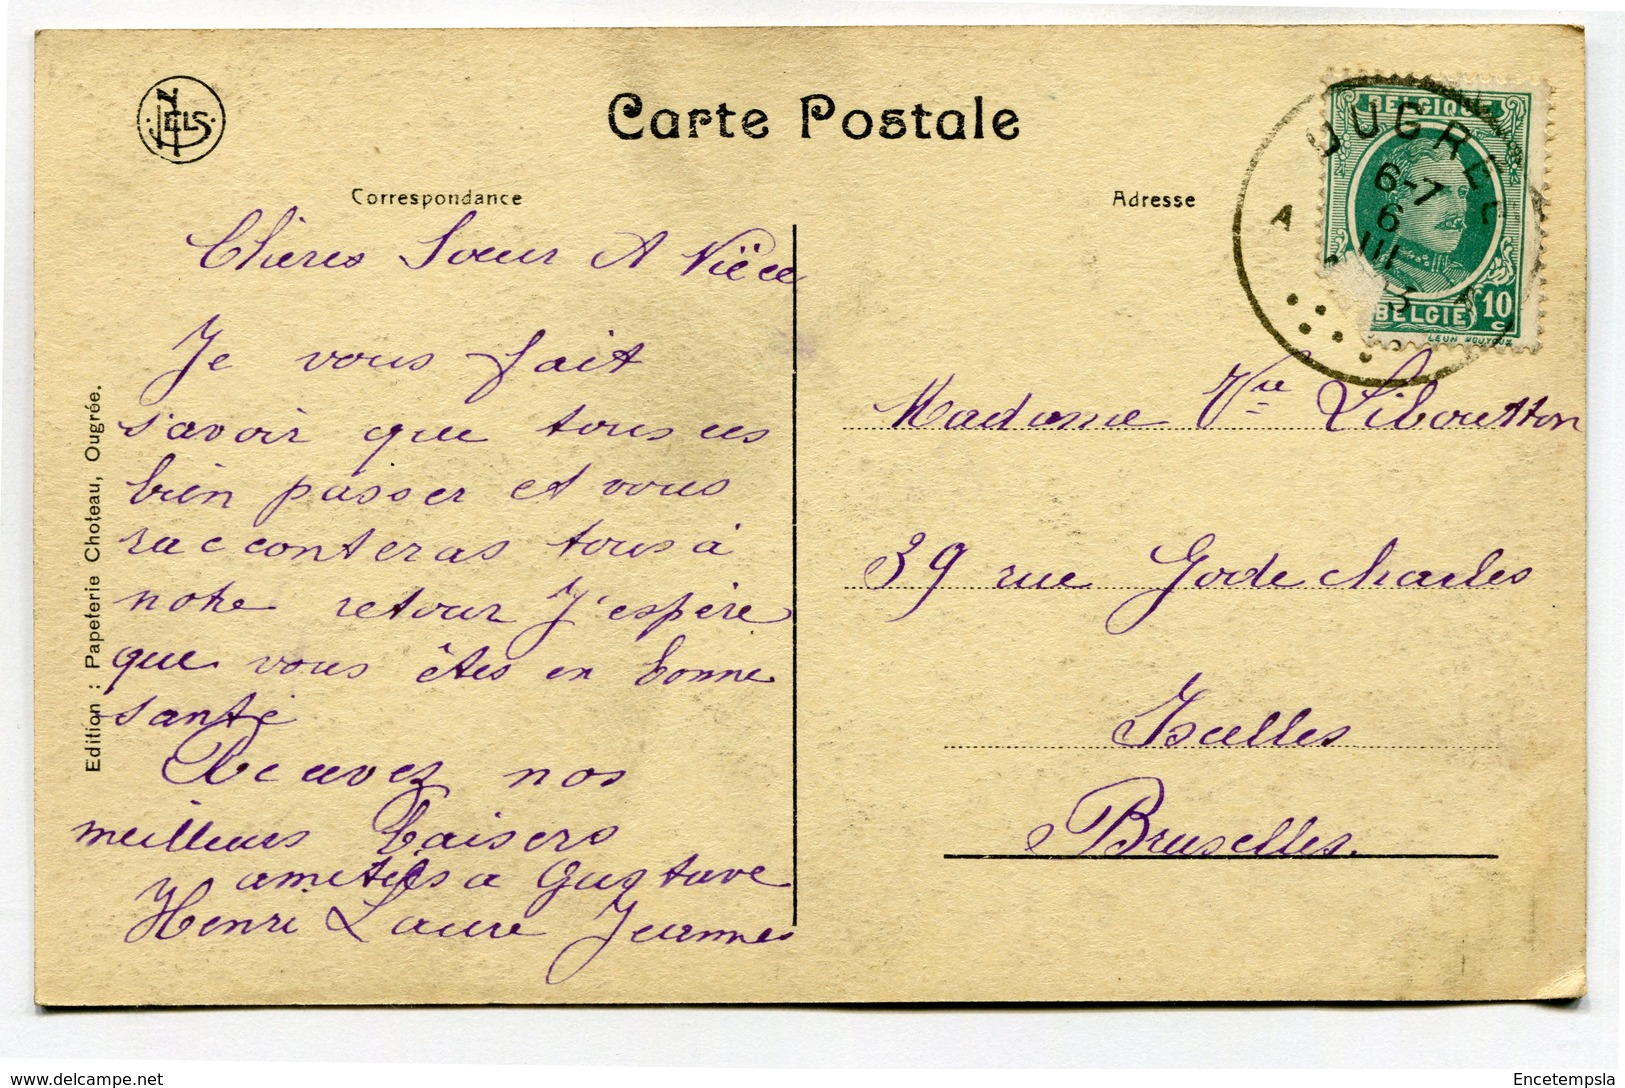 NELS
Carte Postale
Correspondance
Adresse
Chères Soeur et Nièce
Je vous fait
savoir que tous ces
bien passer et vous
racconteras tous à
notre retour J'espère
que vous êtes en bonne
santé
Recevez nos
meilleurs baisers
amitiés a Gustave
Henri Laure Jeanne
Edition : Papeterie Choteau, Ougrée.
BELGIQUE
BELGIE
10
c
OUGREE
A
6-7
6
III
Madame Vve Liboutton
39 rue Gode charles
Ixelles
Bruxelles.
delcampe.net
Encetempsla